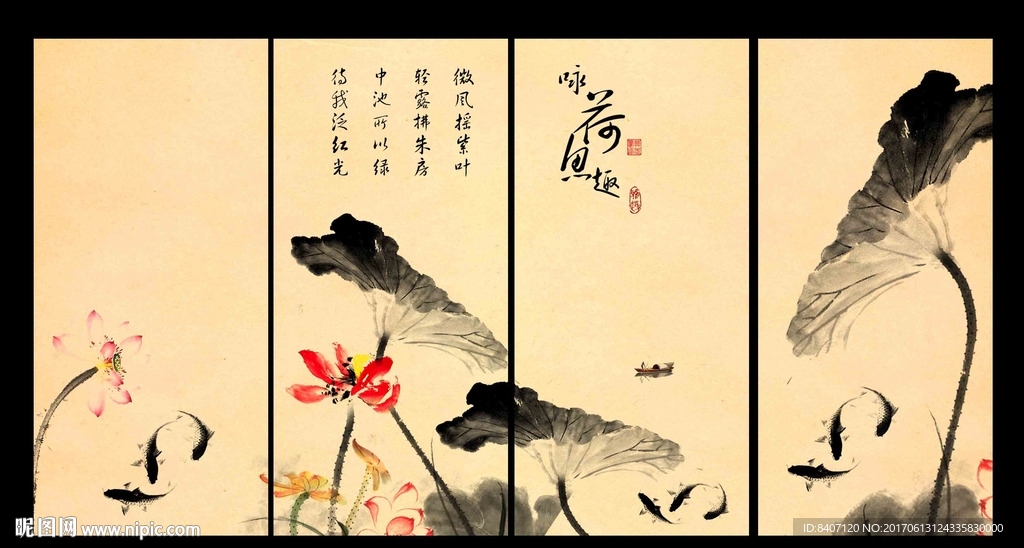 微风摇紫叶
轻露拂朱房
中池所以绿
待我泛红光
咏荷思趣
昵图网 www.nipic.com
ID:8407120 NO:20170613124335830000